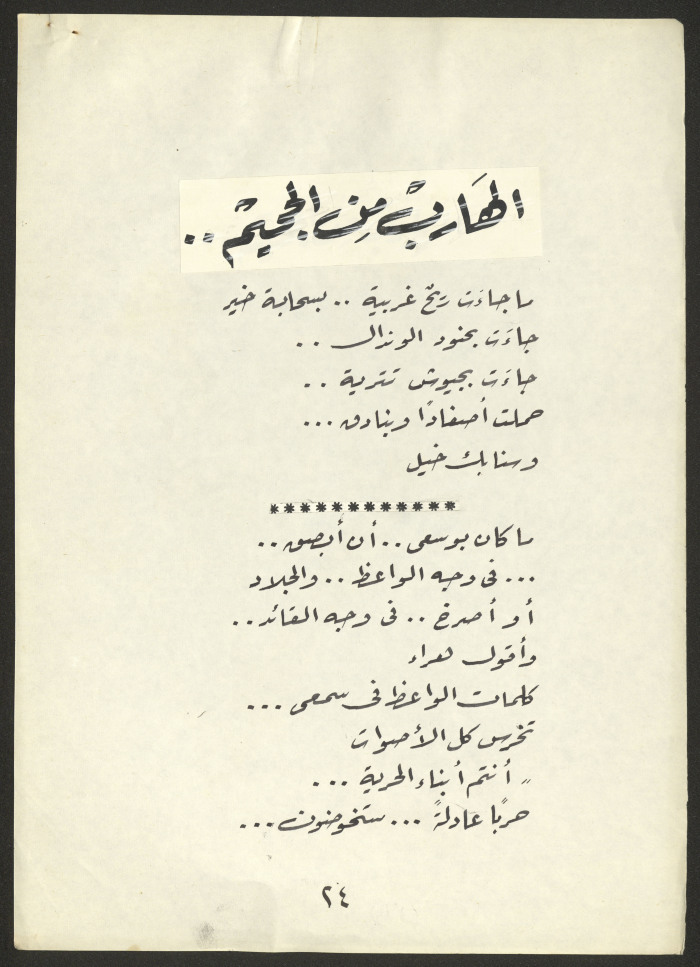 الهَاربْ مِن الجحيمْ ..
ما جاءَت ريحٌ غربية .. بسحابة خير
جاءَت بجنود الوندال ..
جاءَت بجيوش تترية ..
حملت أصفادًا وبنادق ...
وسنابك خيل
************
ما كان بوسعى .. أن أبصق ..
... فى وجه الواعظ .. والجلاد
أو أصرخ .. فى وجه القائد ..
وأقول هراء
كلمات الواعظ فى سمعى ...
تخرس كل الأصوات
" أنتم أبناء الحرية ...
حربًا عادلةً ... ستخوضون ...
٢٤